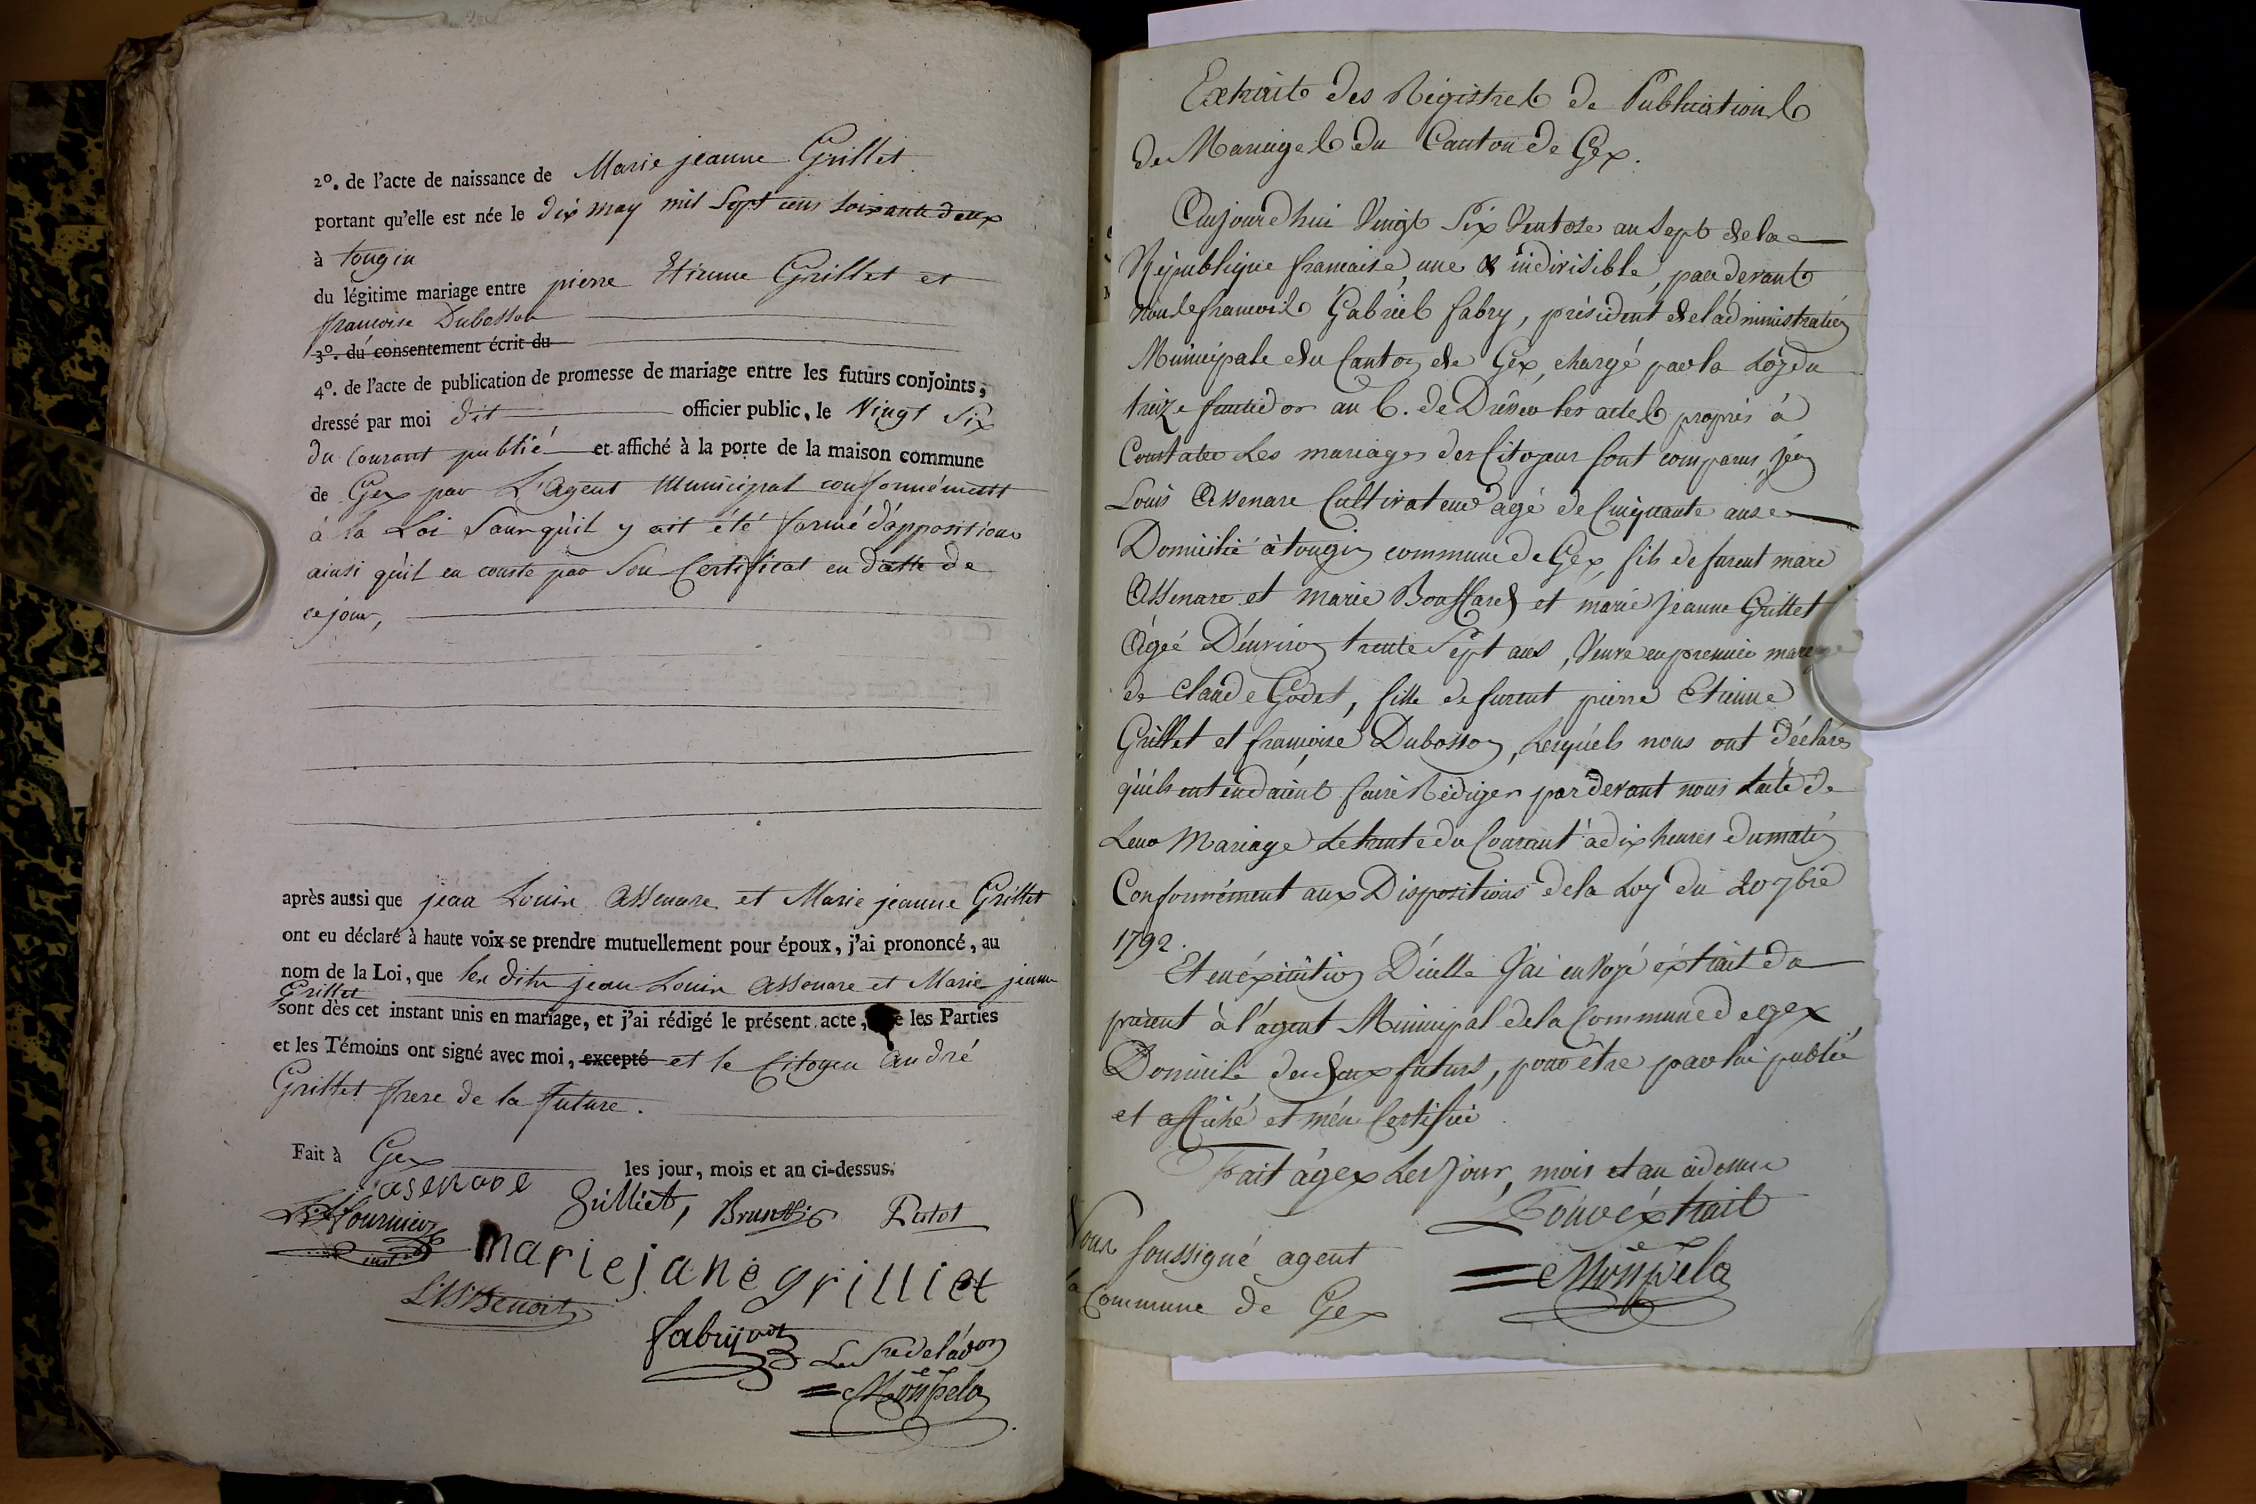 2°. de l'acte de naissance de Marie jeanne Grillet
portant qu'elle est née le dix may mil Sept cens soixante deux
à tougin
du légitime mariage entre pierre Etienne Grillet et
françoise Dubosson
3°. du consentement écrit du
4°. de l'acte de publication de promesse de mariage entre les futurs conjoints,
dressé par moi dit officier public, le Vingt Six
du Courant publié et affiché à la porte de la maison commune
de Gex par L'Agent Municipal conformément
à la Loi Sans qu'il y ait été formé d'apposition
ainsi qu'il en conste par Son Certificat en datte de
ce jour,
après aussi que jean Louis Assenare et Marie jeanne Grillet
ont eu déclaré à haute voix se prendre mutuellement pour époux, j'ai prononcé, au
nom de la Loi, que les dits jean Louis Assenare et Marie jeanne
Grillet
sont dès cet instant unis en mariage, et j'ai rédigé le présent acte, que les Parties
et les Témoins ont signé avec moi, excepté et le Citoyen André
Grillet frere de la future.
Fait à Gex les jour, mois et an ci-dessus.
asenare
fournier Grilliet, Pertot
marie jane grilliet
Benoit
fabry
Monpela
Extrait des Régistres de Publications
de Mariages du Canton de Gex.
Aujourdhui Vingt Six Ventose an Sept de la
République francaise, une & indivisible, par devant
nous francois Gabriel fabry, président de l'administration
Municipale du Canton de Gex, chargé par la Loy du
treize fructidor an 6. de Dresser les actes propres à
Constater Les mariages des Citoyens sont comparus, jean
Louis Assenare Cultivateur agé de Cinquante ans
Domicilié à tougin commune de Gex, fils de furent marc
Assenare et marie Bouffard et marie Jeanne Grillet
Agée D'environ trente Sept ans, Veuve en premier mariage
de Claude Godet, fille de furent pierre Etienne
Grillet et françoise Dubosson, Lesquels nous ont déclarés
qu'ils entendaient faire Rédiger par devant nous l'acte de
Leur Mariage Le trente du Courant à dix heures du matin
Conformément aux Dispositions de la Loy du 20 7bre
1792.
Et en éxécution D'icelle J'ai envoyé éxtrait du
présent à l'agent Municipal de la Commune de gex
Domicile des deux futurs, pour être par lui publié
et affiché et m'en Certifié
Fait à gex Les Jour, mois et an cidessus
Pour éxtrait
Monpela
Nous soussigné agent
la Commune de Gex